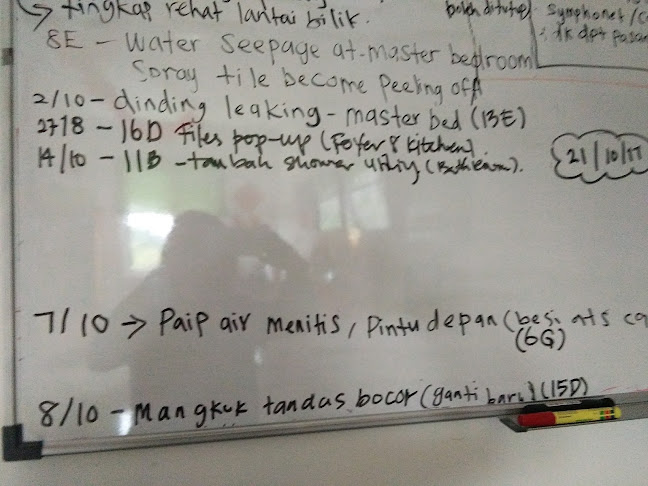 → tingkap rehat lantai bilik.
boleh ditutup
Symphonet/
: tk dpt pasang
8E - Water Seepage at master bedroom
Spray tile become peeling off
2/10 - dinding leaking - master bed (13E)
2718 - 16D Tiles pop-up (Foyer & Kitchen).
14/10 - 11B - tambah shower utility (Bathroom).
21/10/17
7/10 → Paip air menitis, Pintu depan (besi ats
(6G)
8/10 - Mangkuk tandas bocor (ganti baru) (15D)